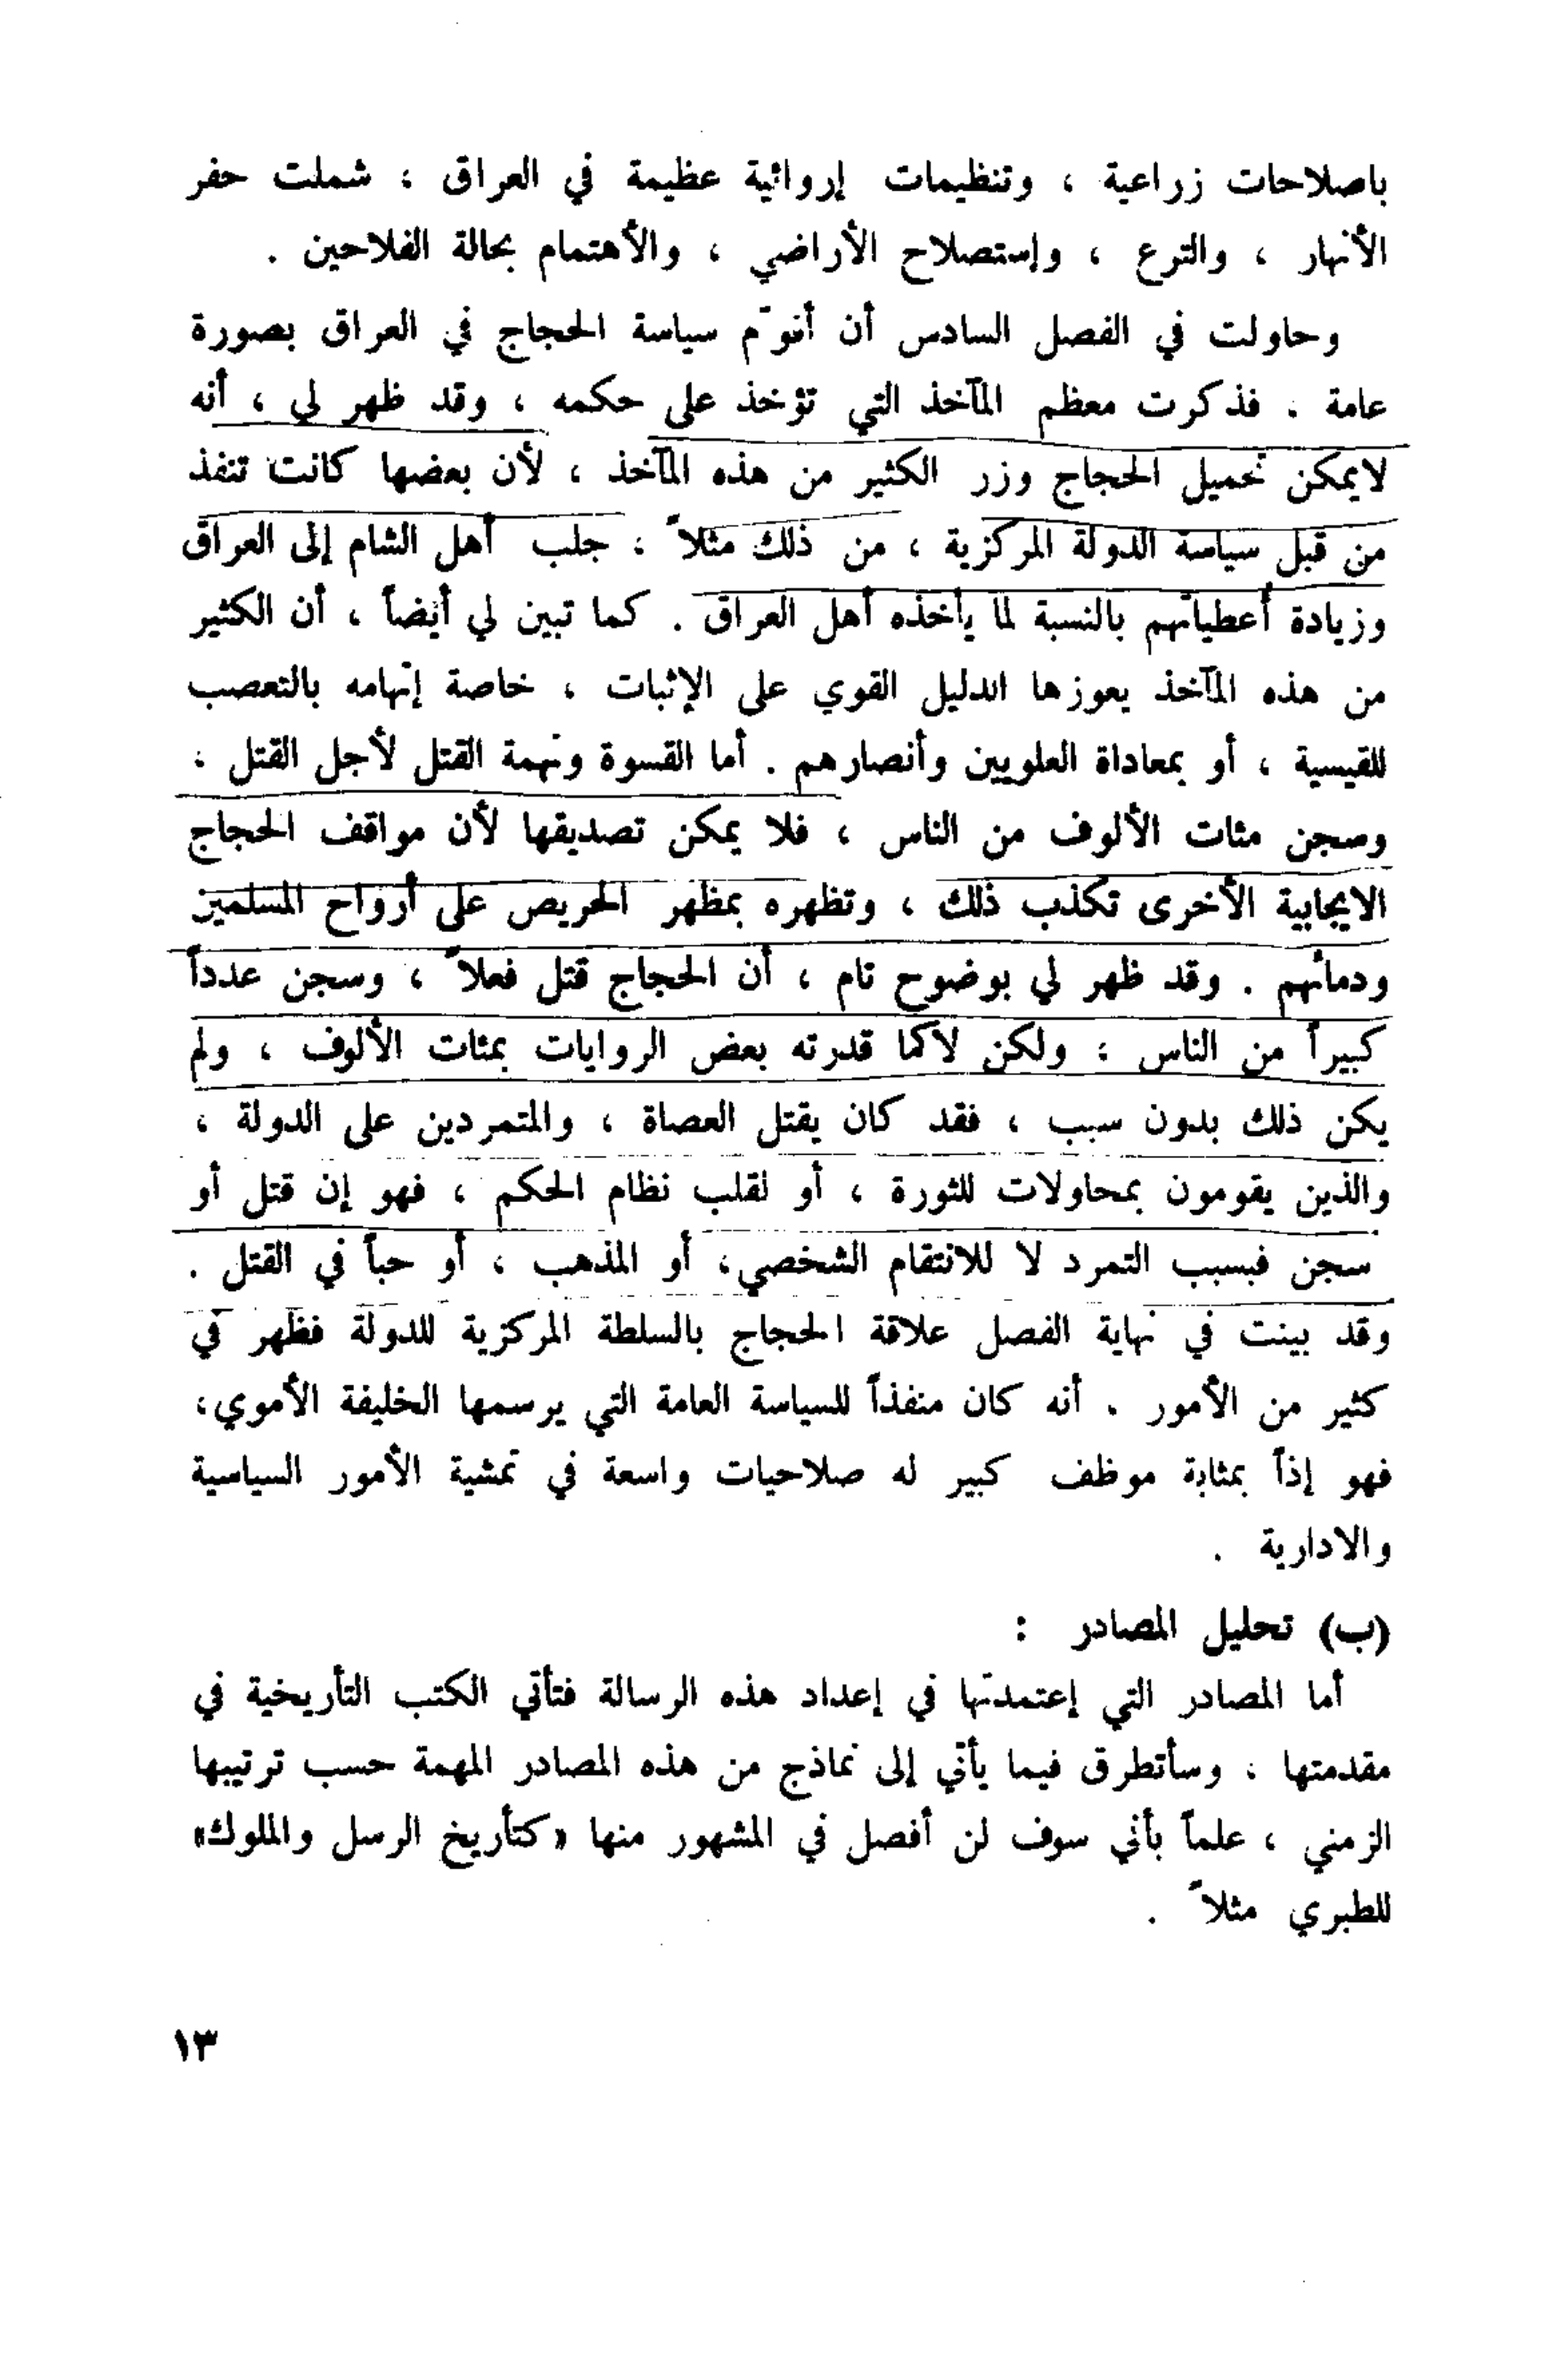 باصلاحات زراعية ، وتنظيمات إروائية عظيمة في العراق ، شملت حفر
الأنهار ، والترع ، وإستصلاح الأراضي ، والأهتمام بحالة الفلاحين .
وحاولت في الفصل السادس أن أنوّم سياسة الحجاج في العراق بصورة
عامة . فذكرت معظم المآخذ التي تؤخذ على حكمه ، وقد ظهر لي ، أنه
لايمكن تحميل الحجاج وزر الكثير من هذه المآخذ ، لأن بعضها كانت تنفذ
من قبل سياسة الدولة المركزية ، من ذلك مثلاً ، جلب أهل الشام إلى العراق
وزيادة أعطياتهم بالنسبة لما يأخذه أهل العراق . كما تبين لي أيضاً ، أن الكثير
من هذه المآخذ يعوزها الدليل القوي على الإثبات ، خاصة إتهامه بالتعصب
للقيسية ، أو بمعاداة العلويين وأنصارهم . أما القسوة وتهمة القتل لأجل القتل ،
وسجن مئات الألوف من الناس ، فلا يمكن تصديقها لأن مواقف الحجاج
الايجابية الأخرى تكذب ذلك ، وتظهره بمظهر الحريص على أرواح المسلمين
ودمائهم . وقد ظهر لي بوضوح تام ، أن الحجاج قتل فعلاً ، وسجن عدداً
كبيراً من الناس ؛ ولكن لاكما قدرته بعض الروايات بمئات الألوف ، ولم
يكن ذلك بدون سبب ، فقد كان يقتل العصاة ، والمتمردين على الدولة ،
والذين يقومون بمحاولات للثورة ، أو لقلب نظام الحكم ، فهو إن قتل أو
سجن فبسبب التمرد لا للانتقام الشخصي، أو المذهب ، أو حباً في القتل .
وقد بينت في نهاية الفصل علاقة الحجاج بالسلطة المركزية للدولة فظهر في
كثير من الأمور . أنه كان منفذاً للسياسة العامة التي يرسمها الخليفة الأموي،
فهو إذاً بمثابة موظف كبير له صلاحيات واسعة في تمشية الأمور السياسية
والادارية .
(ب) تحليل المصادر :
أما المصادر التي إعتمدتها في إعداد هذه الرسالة فتأتي الكتب التأريخية في
مقدمتها ، وسأتطرق فيما يأتي إلى نماذج من هذه المصادر المهمة حسب ترتيبها
الزمني ، علماً بأني سوف لن أفصل في المشهور منها «كتأريخ الرسل والملوك»
للطبري مثلاً .
١٣